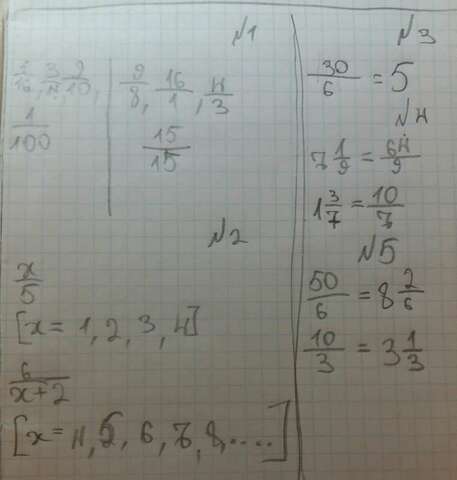 №1
3/4, 9/10,
1/100
9/8, 16/1, 4/3
15/15
№2
x/5
[x = 1, 2, 3, 4]
6/(x+2)
[x = 4, 5, 6, 7, 8, ....]
№3
30/6 = 5
№4
7 1/9 = 64/9
1 3/7 = 10/7
№5
50/6 = 8 2/6
10/3 = 3 1/3